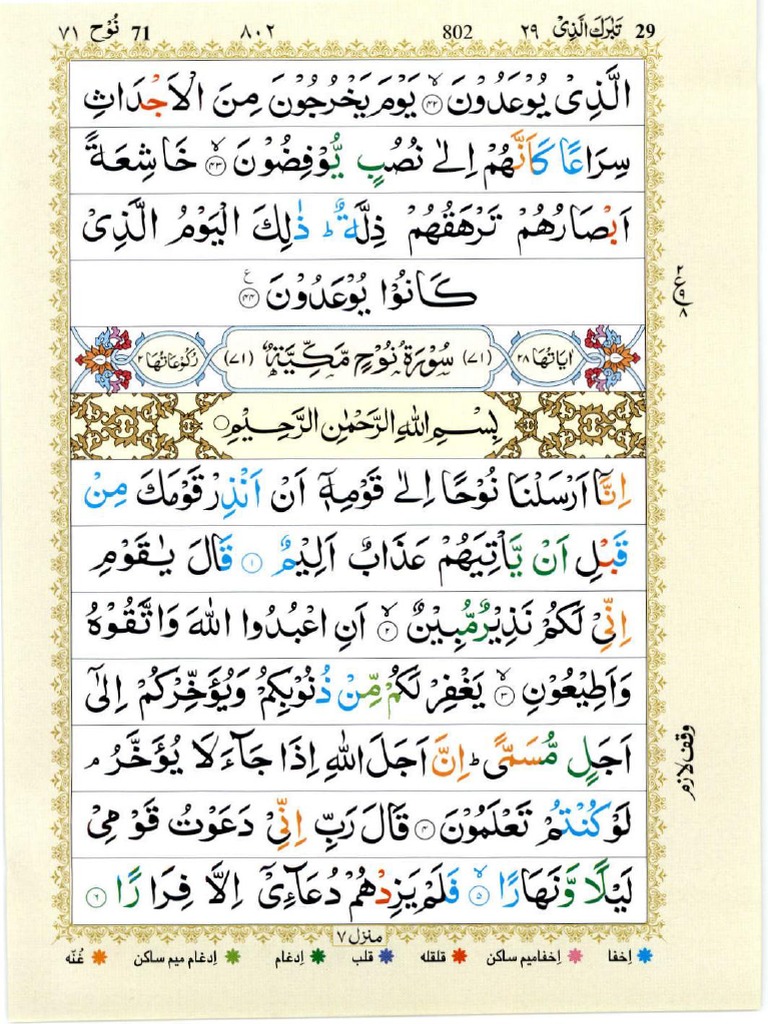 29 تَبٰرَكَ الَّذِیْ ۲۹ 802 ۸۰۲ 71 نُوْح ۷۱
الَّذِیْ یُوْعَدُوْنَ ۙ﴿۴۲﴾ یَوْمَ یَخْرُجُوْنَ مِنَ الْاَجْدَاثِ
سِرَاعًا كَاَنَّهُمْ اِلٰی نُصُبٍ یُّوْفِضُوْنَ ۙ﴿۴۳﴾ خَاشِعَةً
اَبْصَارُهُمْ تَرْهَقُهُمْ ذِلَّةٌ ؕ ذٰلِكَ الْیَوْمُ الَّذِیْ
كَانُوْا یُوْعَدُوْنَ ﴿۴۴﴾ ع
۲ ع ۹ ۸
اٰیَاتُهَا ۲۸ (۷۱) سُوْرَةُ نُوْحٍ مَّكِّیَّةٌ (۷۱) رُكُوْعَاتُهَا ۲
بِسْمِ اللّٰهِ الرَّحْمٰنِ الرَّحِیْمِ
اِنَّاۤ اَرْسَلْنَا نُوْحًا اِلٰی قَوْمِهٖۤ اَنْ اَنْذِرْ قَوْمَكَ مِنْ
قَبْلِ اَنْ یَّاْتِیَهُمْ عَذَابٌ اَلِیْمٌ ﴿۱﴾ قَالَ یٰقَوْمِ
اِنِّیْ لَكُمْ نَذِیْرٌ مُّبِیْنٌ ۙ﴿۲﴾ اَنِ اعْبُدُوا اللّٰهَ وَاتَّقُوْهُ
وَاَطِیْعُوْنِ ۙ﴿۳﴾ یَغْفِرْ لَكُمْ مِّنْ ذُنُوْبِكُمْ وَیُؤَخِّرْكُمْ اِلٰۤی
اَجَلٍ مُّسَمًّی ؕ اِنَّ اَجَلَ اللّٰهِ اِذَا جَآءَ لَا یُؤَخَّرُ ۘ
وقف لازم
لَوْ كُنْتُمْ تَعْلَمُوْنَ ﴿۴﴾ قَالَ رَبِّ اِنِّیْ دَعَوْتُ قَوْمِیْ
لَیْلًا وَّنَهَارًا ۙ﴿۵﴾ فَلَمْ یَزِدْهُمْ دُعَآءِیْۤ اِلَّا فِرَارًا ﴿۶﴾
منزل ۷
اِخفا اِخفا میم ساکن قلقله قلب اِدغام اِدغام میم ساکن غُنّه